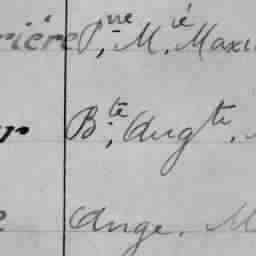 rière P,ne M.ie Maxi
B,te Aug te.
Ange. M